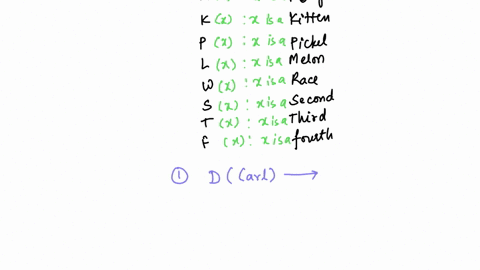 K (x) : x is a Kitten
P (x) : x is a Pickel
L (x) : x is a Melon
W (x) : x is a Race
S (x) : x is a Second
T (x) : x is a Third
F (x) : x is a fourth
① D ( (arl) ⟶